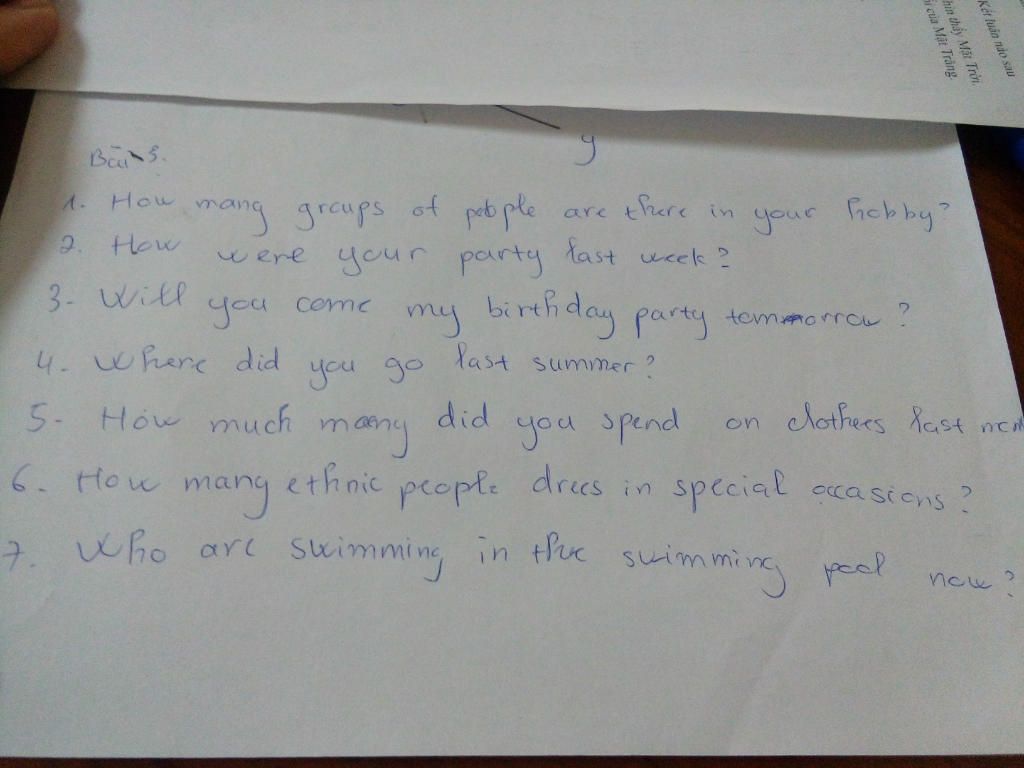 Kết luận nào sau
hìn thấy Mặt Trời
i của Mặt Trăng
y
Bài 3.
1. How many groups of people are there in your hobby?
2. How were your party last week?
3- Will you come my birthday party tommorrow?
4. Where did you go last summer?
5- How much many did you spend on clothers last
6- How many ethnic people drees in special occasions?
7. Who are swimming in the swimming pool now?